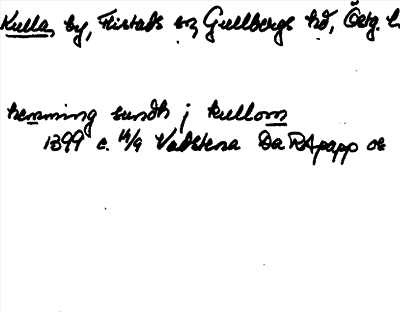 Kulla, by, Flistads sn, Gullbergs hd, Östg. l.
hemming sundh j kullom
1399 c. 14/9 Vadstena Da RA papp or